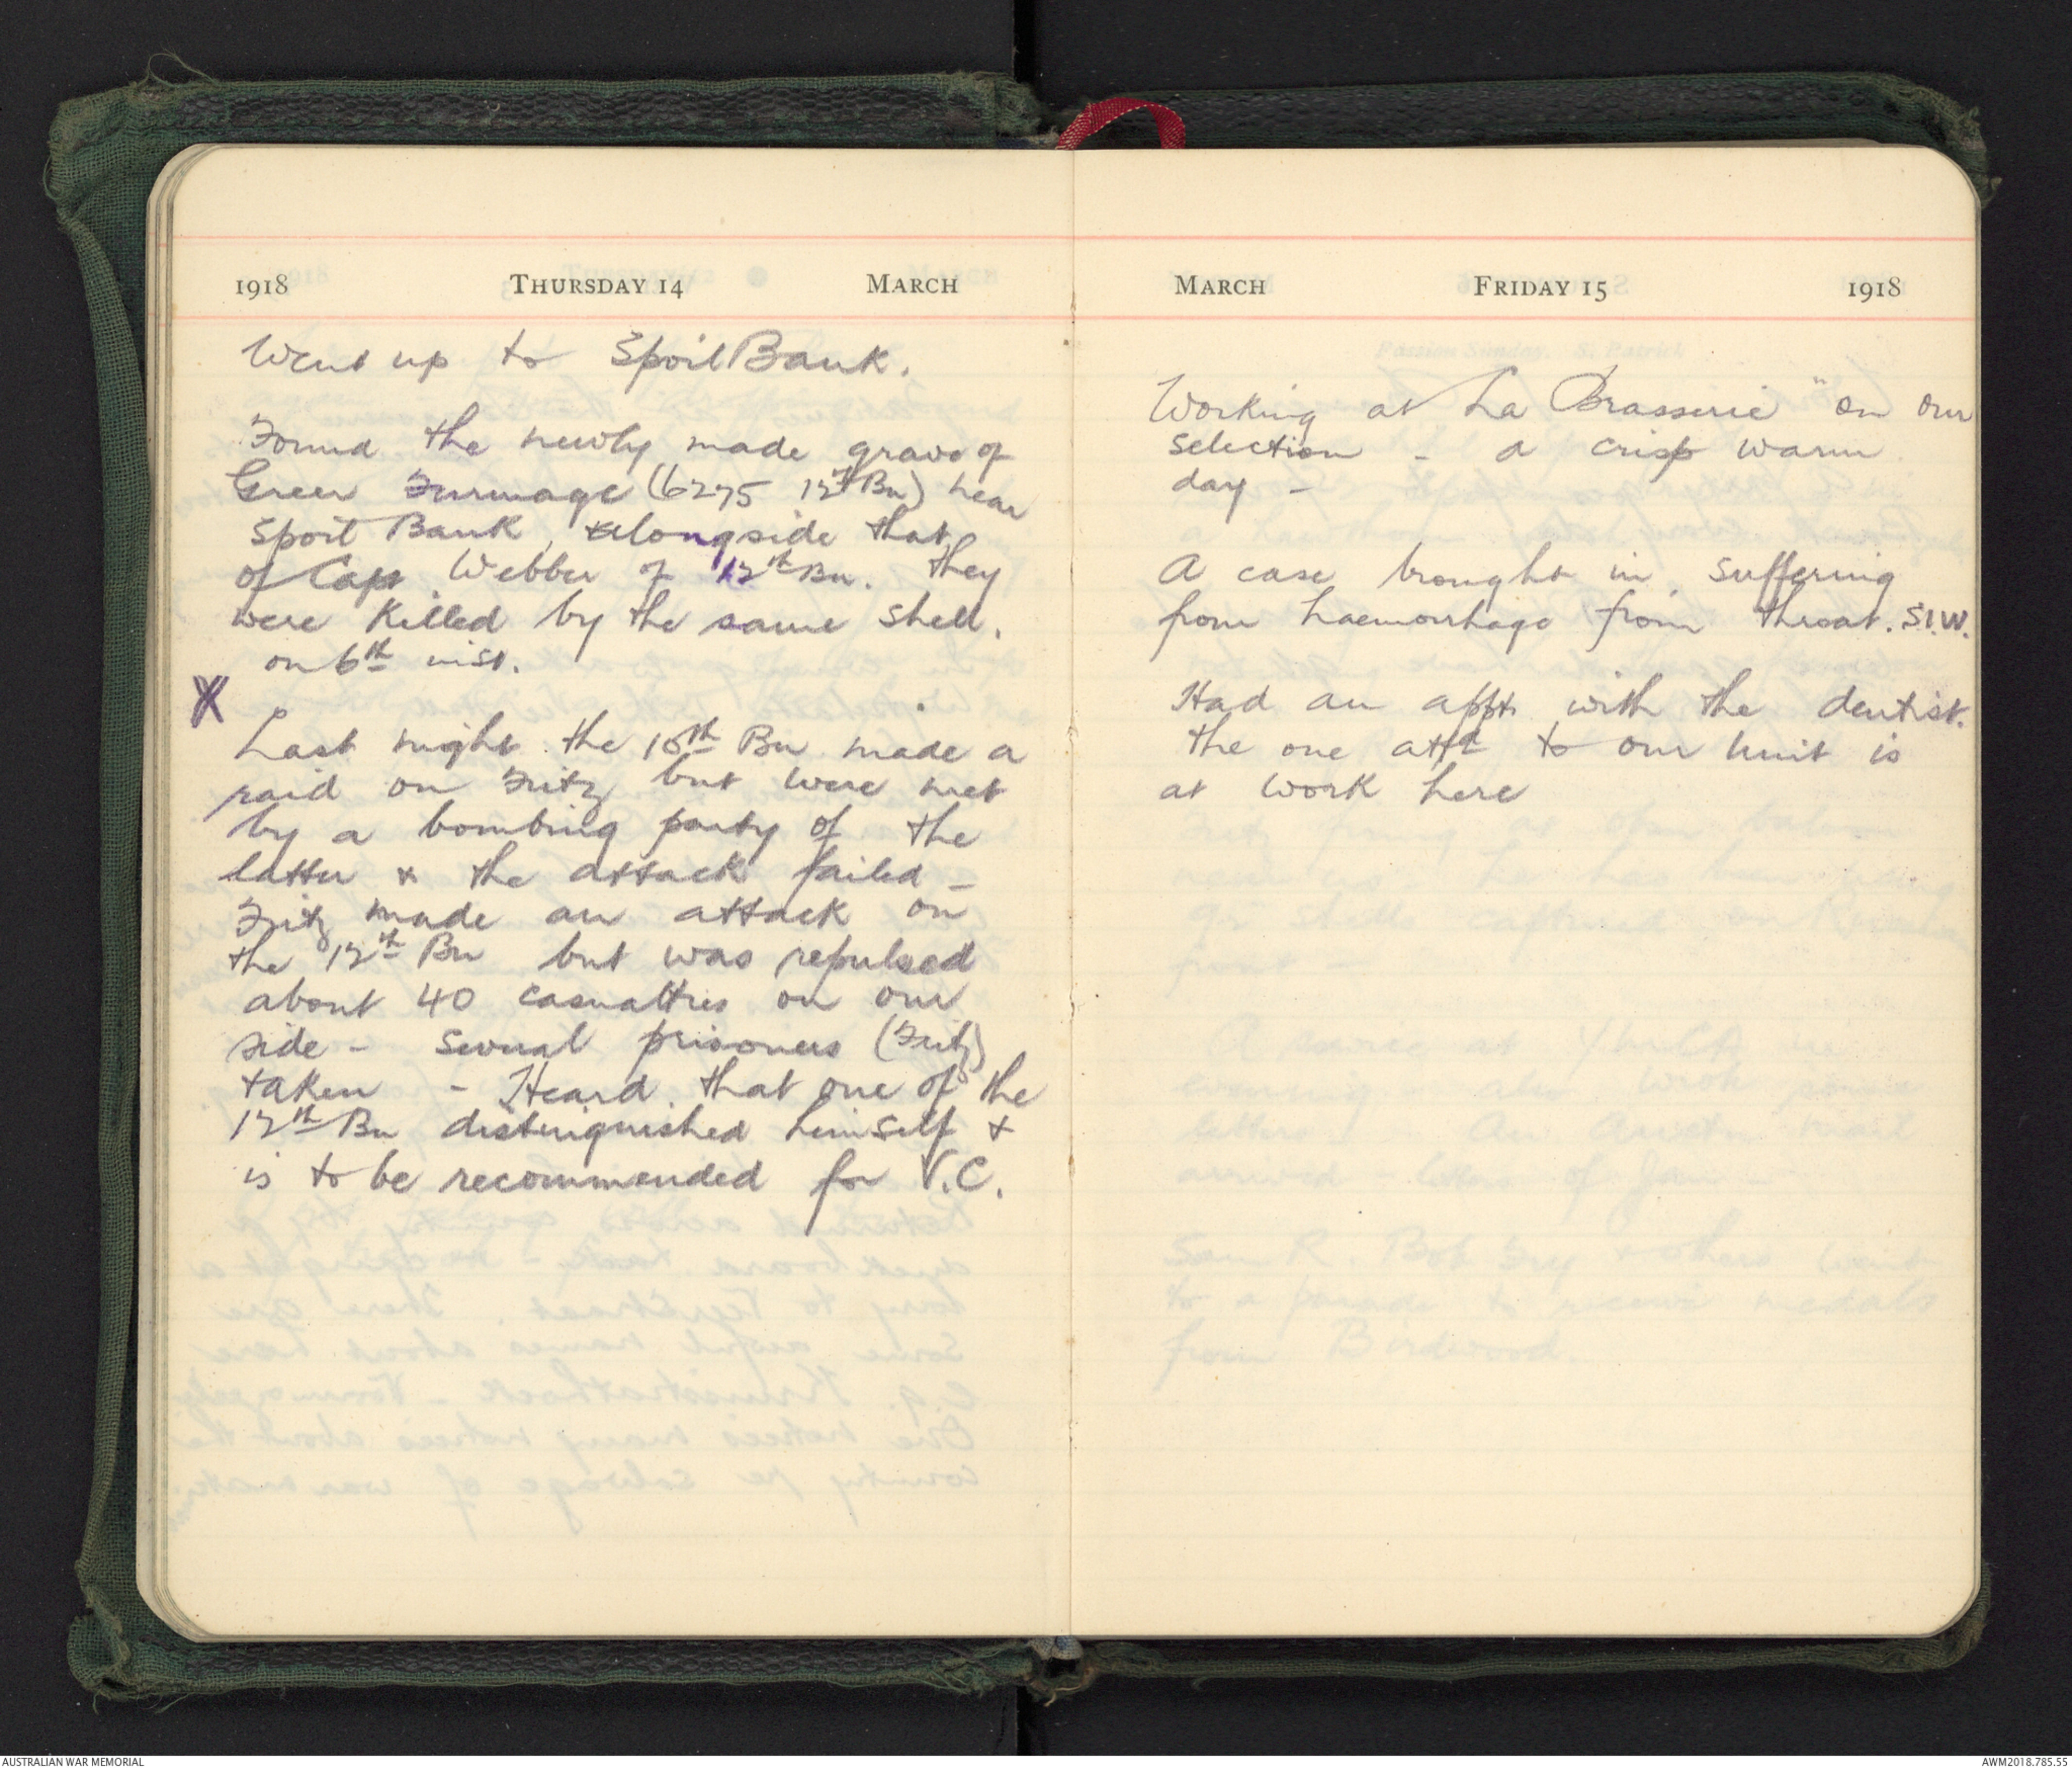 1918 THURSDAY 14 MARCH
Went up to Spoil Bank.
Found the newly made grave of
Greer Furmage (6275 12th Bn) near
Spoil Bank, alongside that
of Capt Webber of 12th Bn. They
were killed by the same shell.
on 6th inst.
X
Last night the 10th Bn made a
raid on Fritz but were met
by a bombing party of the
latter & the attack failed -
Fritz made an attack on
the 12th Bn but was repulsed
about 40 casualties on our
side - several prisoners (Fritz)
taken - Heard that one of the
12th Bn distinguished himself &
is to be recommended for V.C.
MARCH FRIDAY 15 1918
Working at La Brasserie" on our
selection - a crisp warm
day -
A case brought in suffering
from haemorrhage from throat. S.I.W.
Had an appt. with the dentist.
the one attd to our unit is
at work here
AUSTRALIAN WAR MEMORIAL
AWM2018.785.55